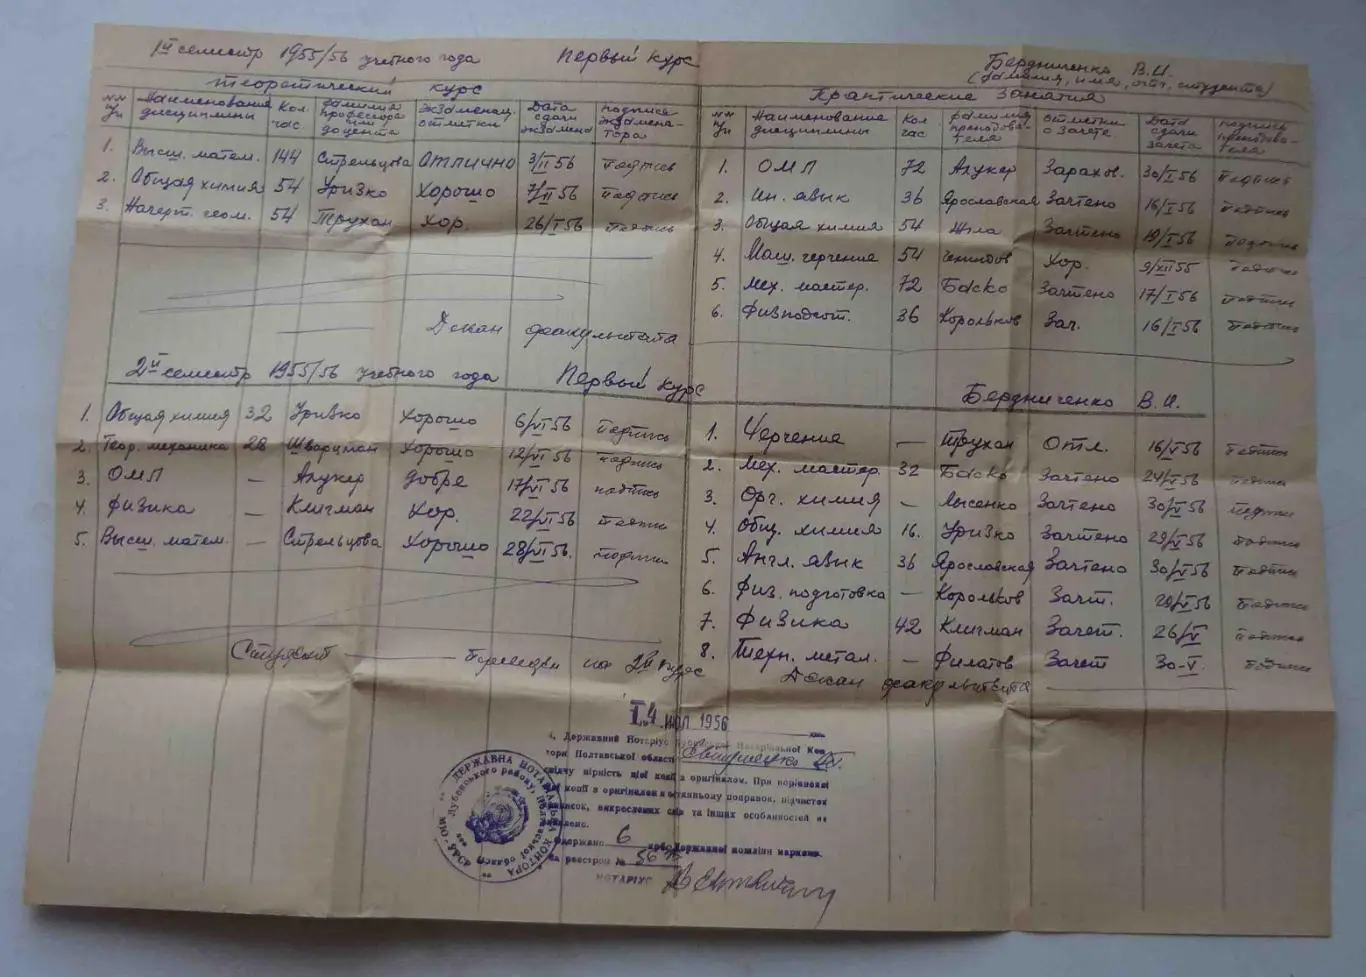 1й семестр 1955/56 учебного года Первый курс
Теоретический курс
№№ п/п Наименования дисциплины Кол. час фамилия профессора или доцента Экзаменац. отметки Дата сдачи экзамена подпись экзаменатора
1. Высш. матем. 144 Стрельцова Отлично 3/II 56 подпись
2. Общая химия 54 Уризко Хорошо 7/II 56 подпись
3. Начерт. геом. 54 Трухан Хор. 26/I 56 подпись
Декан факультета
2й семестр 1955/56 учебного года Первый курс
1. Общая химия 32 Уризко Хорошо 6/VI 56 подпись
2. Теор. механика 28 Шварцман Хорошо 12/VI 56 подпись
3. ОМЛ — Алукер добре 17/VI 56 подпись
4. Физика — Клигман Хор. 22/VI 56 подпись
5. Высш. матем. — Стрельцова Хорошо 28/VI 56. подпись
Студент Переведен на 2й курс
Бердниченко В.И.
(фамилия, имя, отч. студента)
Практические занятия
№№ п/п Наименование дисциплины Кол час фамилия преподавателя отметки о зачете Дата сдачи зачета подпись преподавателя
1. ОМЛ 72 Алукер Зарахов. 30/I 56 подпись
2. Ин. язык 36 Ярославская Зачтено 16/I 56 подпись
3. Общая химия 54 Зачтено 19/I 56 подпись
4. Маш. черчение 54 Хор. 9/XII 55 подпись
5. Мех. мастер. 72 Баско Зачтено 17/I 56 подпись
6. Физподгот. 36 Корольков Зач. 16/I 56 подпись
Бердниченко В.И.
1. Черчение — Трухан Отл. 16/V 56 подпись
2. Мех. мастер. 32 Баско Зачтено 24/V 56 подпись
3. Орг. химия — Лысенко Зачтено 30/V 56 подпись
4. Общ. химия 16. Уризко Зачтено 29/V 56 подпись
5. Англ. язык 36 Ярославская Зачтено 30/V 56 подпись
6. Физ. подготовка — Корольков Зачт. 29/V 56 подпись
7. Физика 42 Клигман Зачет. 26/V подпись
8. Техн. метал. — Филатов Зачет 30-V. подпись
Декан факультета
14 ИЮЛ 1956
Державний Нотаріус Нотаріальної Кон
тори Полтавської області
свідчу вірність цієї копії з оригіналом. При порівнянні
копії з оригіналом в останньому поправок, підчисток
приписок, викреслених слів та інших особливостей не
виявлено.
Одержано 6 крб. державної пошлини марками.
За реєстром № 56
НОТАРІУС
ДЕРЖАВНА НОТАРІАЛЬНА КОНТОРА
МЮ-УРСР
Лубенського району, Полтавської області